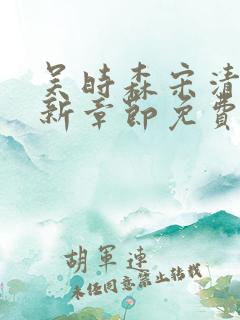 吴时森宋清
新章節免費
胡軍連
未经同意禁止转载